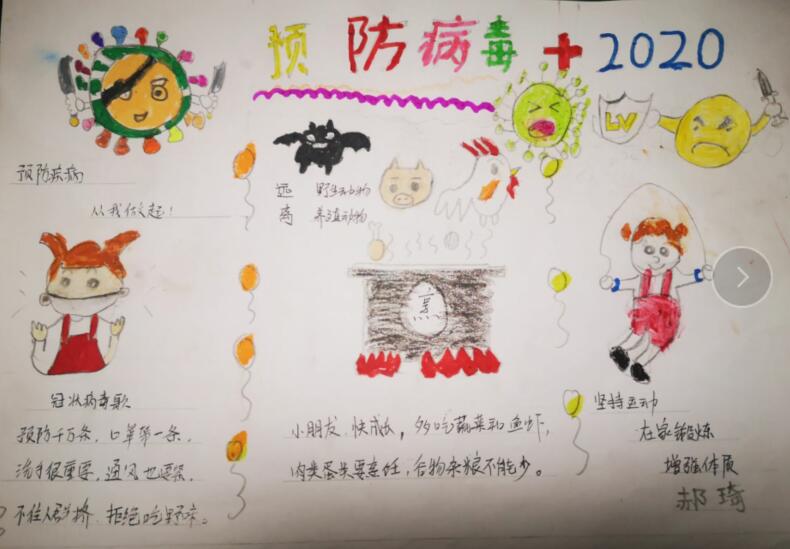 预防病毒 2020
LV
预防疾病
从我做起！
远 野生动物
离 养殖动物
冠状病毒歌
预防千万条，口罩第一条，
洗手很重要，通风也要紧，
不往人群挤，拒绝吃野味。
熏
小朋友，快成长，多吃蔬菜和鱼虾，
肉类蛋类要煮熟，谷物杂粮不能少。
坚持运动
在家锻炼
增强体质
郝琦